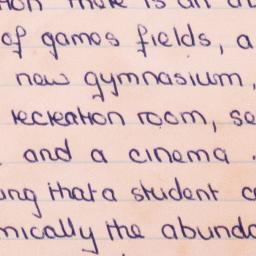 there is an
of games fields, a
new gymnasium,
recreation room, se
and a cinema.
ing that a student c
nically the abunda